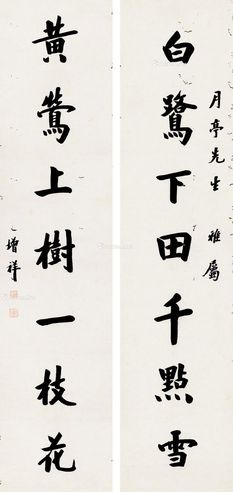 月亭先生 雅屬
白鷺下田千點雪
黃鶯上樹一枝花
增祥